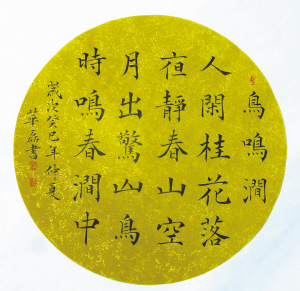 鳥鳴澗
人閑桂花落
夜靜春山空
月出驚山鳥
時鳴春澗中
歲次癸巳年仲夏
華磊書